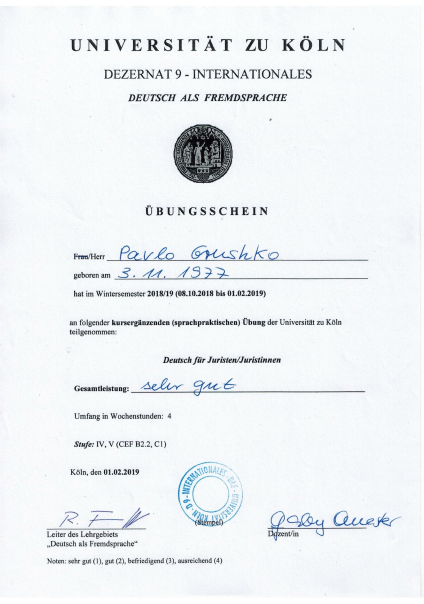 UNIVERSITÄT ZU KÖLN
DEZERNAT 9 - INTERNATIONALES
DEUTSCH ALS FREMDSPRACHE
ÜBUNGSSCHEIN
Frau/Herr Pavlo Grushko
geboren am 3. 11. 1977
hat im Wintersemester 2018/19 (08.10.2018 bis 01.02.2019)
an folgender kursergänzenden (sprachpraktischen) Übung der Universität zu Köln
teilgenommen:
Deutsch für Juristen/Juristinnen
Gesamtleistung: sehr gut
Umfang in Wochenstunden: 4
Stufe: IV, V (CEF B2.2, C1)
Köln, den 01.02.2019
(Stempel)
Leiter des Lehrgebiets
„Deutsch als Fremdsprache"
Dozent/in
Noten: sehr gut (1), gut (2), befriedigend (3), ausreichend (4)